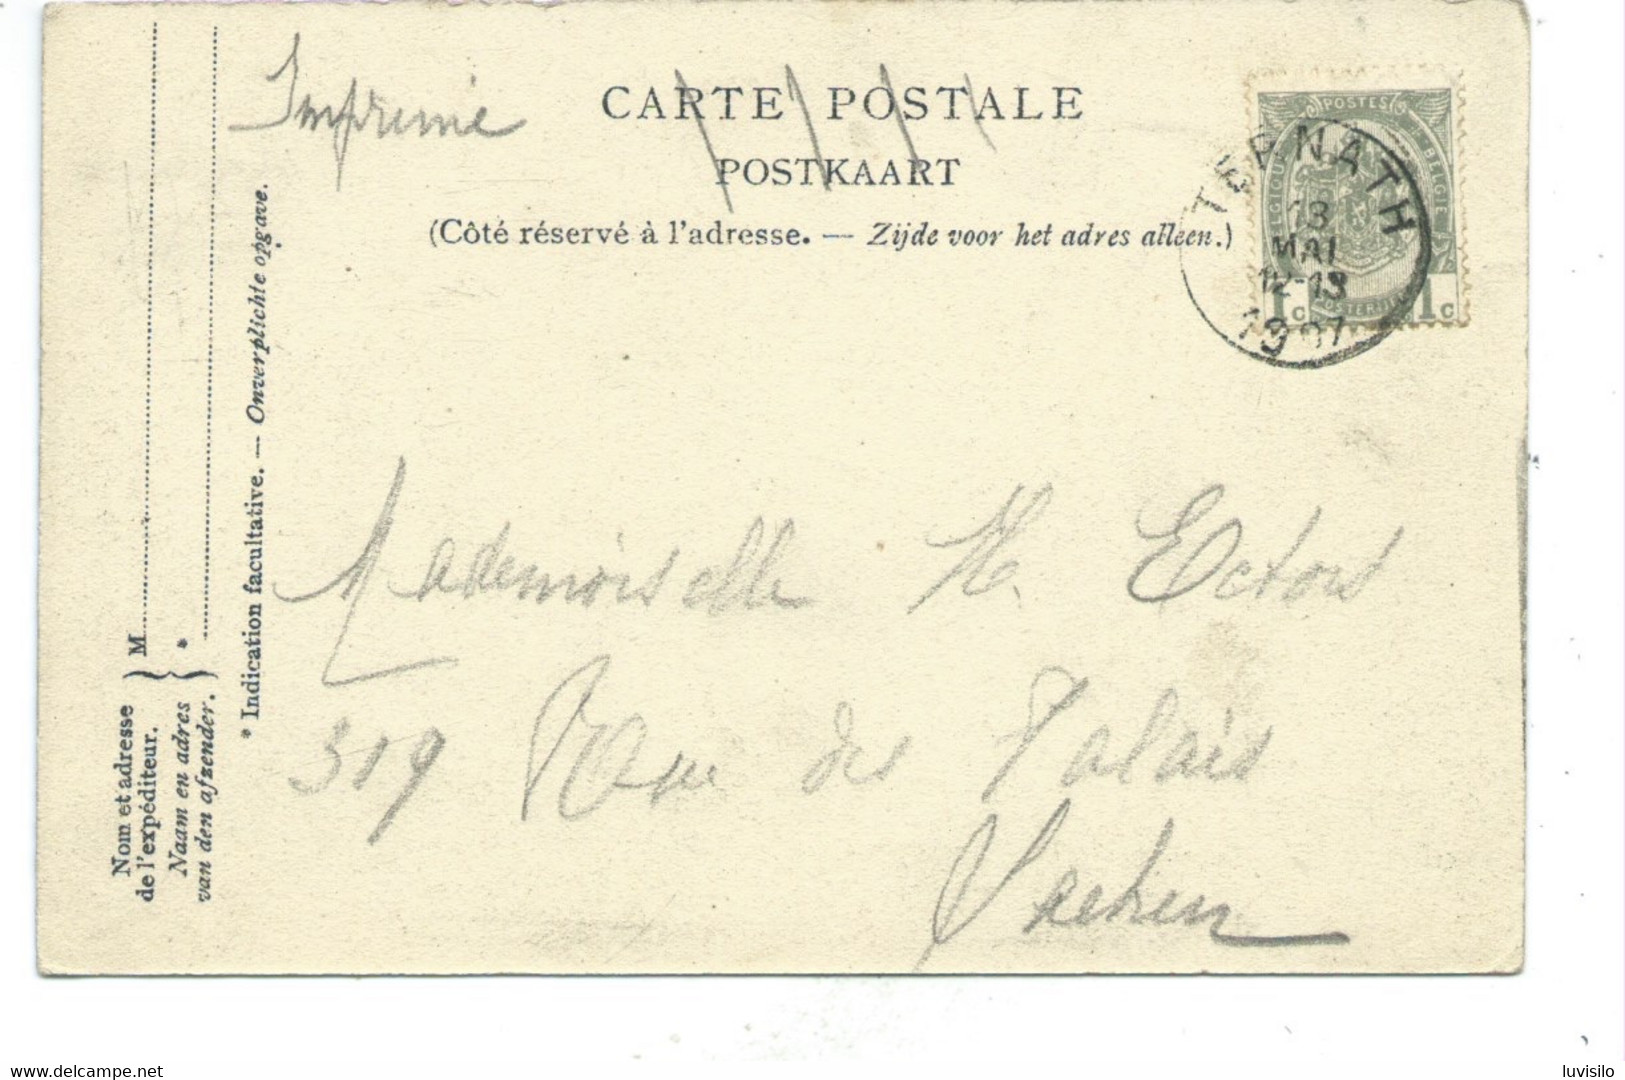 Imprimé
CARTE POSTALE
POSTKAART
(Côté réservé à l'adresse. — Zijde voor het adres alleen.)
POSTES
BELGIQUE
BELGIE
POSTERIJEN
1c 1c
TERNATH
13
MAI
12-13
1907
Mademoiselle
319 Rue des Palais
Laeken
Nom et adresse
de l'expéditeur.
Naam en adres
van den afzender.
M
*
* Indication facultative. — Onverplichte opgave.
luvisilo